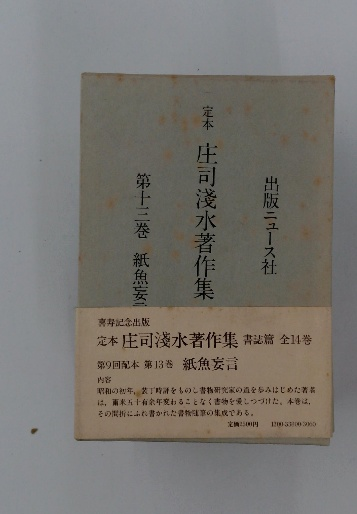 出版ニュース社
定本 庄司淺水著作集
第十三巻 紙魚妄言
喜寿記念出版
定本 庄司淺水著作集 書誌篇 全14巻
第9回配本 第13巻 紙魚妄言
内容
昭和の初年、装丁時評をものし書物研究家の道を歩みはじめた著者
は、爾来五十有余年変わることなく書物を愛しつづけた。本巻は、
その間折にふれ書かれた書物随筆の集成である。